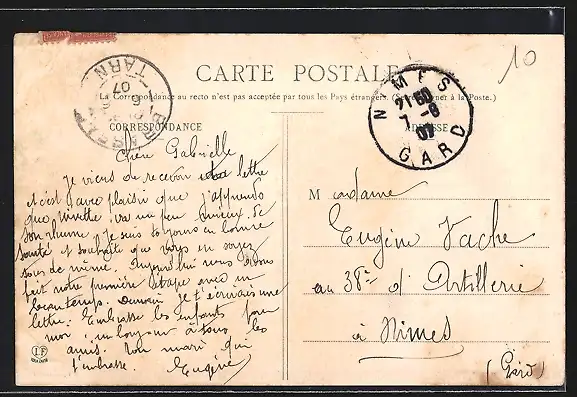 10
CARTE POSTALE
La Correspondance au recto n'est pas acceptée par tous les Pays étrangers. (Se renseigner à la Poste.)
CORRESPONDANCE
ADRESSE
TARN
07
NIMES
21 50
7 -8
07
GARD
Chère Gabrielle
Je viens de recevoir ta lettre
et c'est avec plaisir que j'apprends
que va un peu mieux. de
son rhume. Je suis toujours en bonne
santé et souhaite que vous en soyez
tous de même. Aujourd'hui nous avons
fait notre première étape avec un
beau temps. Demain je t'écrirais une
lettre. Embrasse les enfants pour
moi, un bonjour à tous les
amis. Ton mari qui
t'embrasse. Eugène
Madame
Eugène Vache
au 38me d'Artillerie
à Nimes
(Gard)